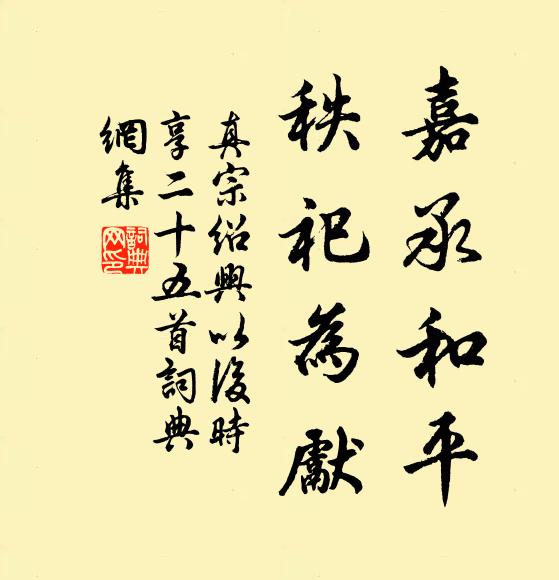 嘉承和平
秩祀為獻
真宗紹興以後時
享二十五首詞典
網集
詞典
网印